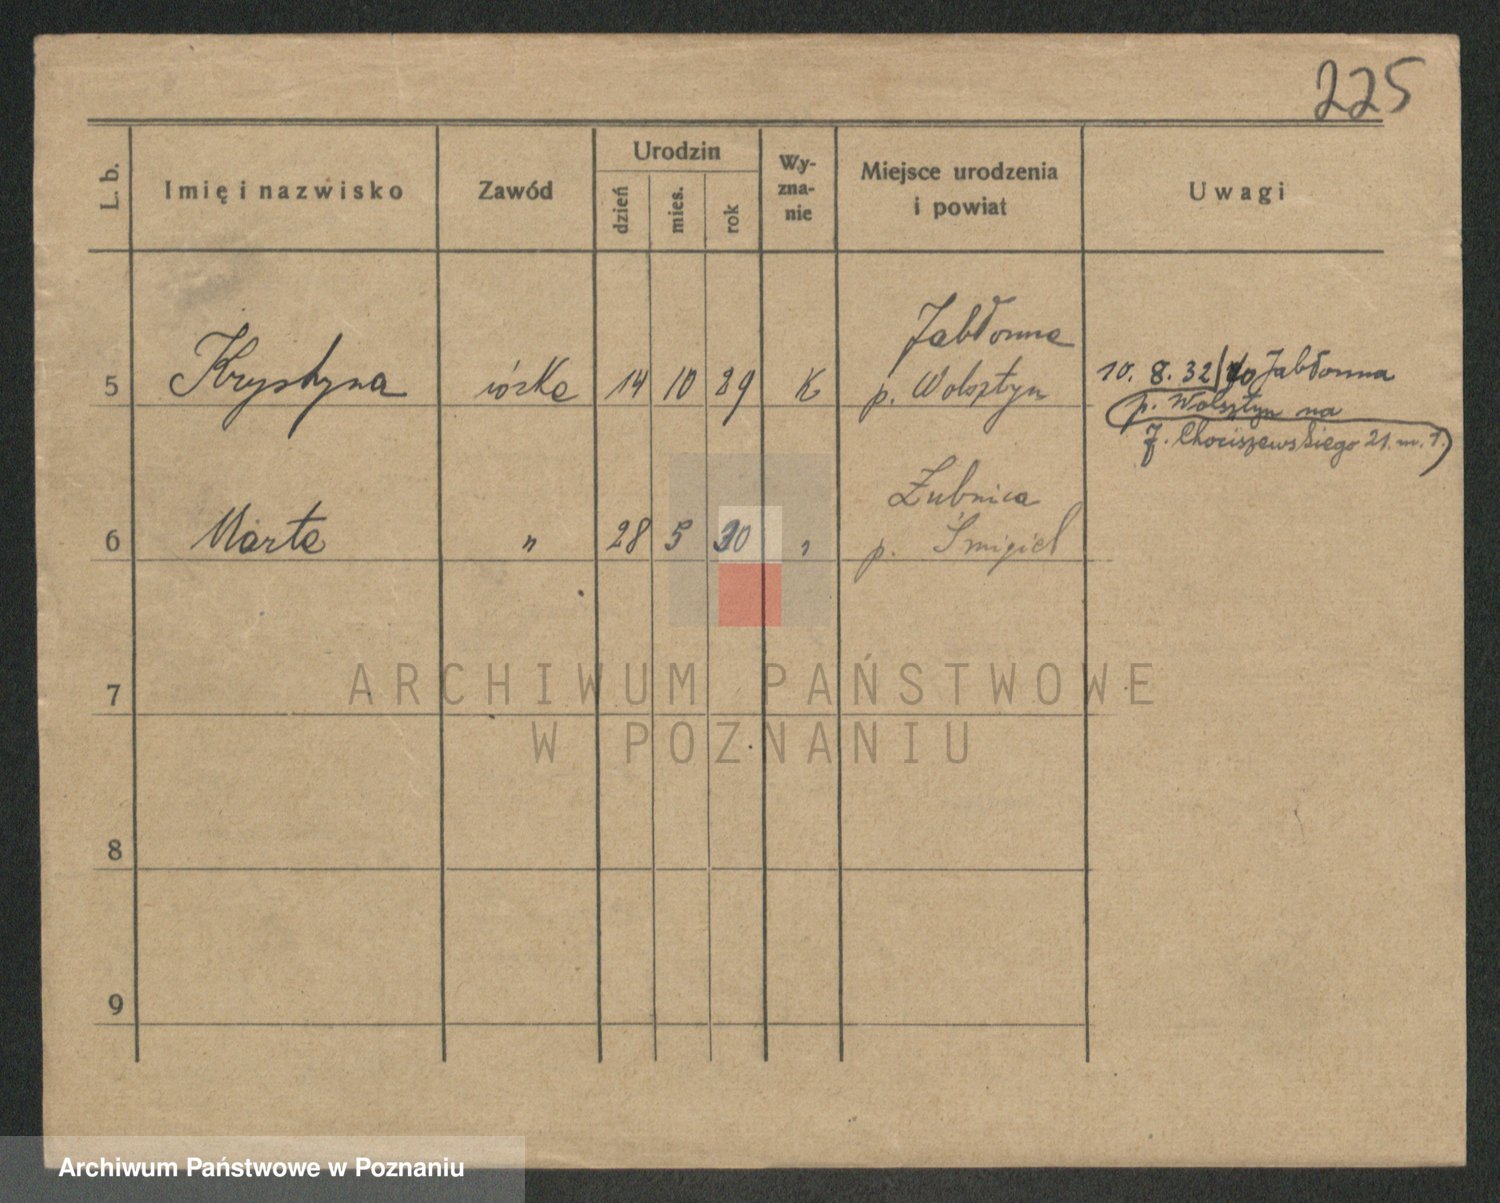 225
L. b.
Imię i nazwisko
Zawód
Urodzin
dzień
mies.
rok
Wy-
zna-
nie
Miejsce urodzenia
i powiat
Uwagi
Jabłonna
5 Krystyna córka 14 10 29 K p. Wolsztyn
10. 8. 32 do Jabłonna
p. Wolsztyn na
Chociszewskiego 21. m. 1.
Żubnica
6 Marta " 28 5 30 " p. Śmigiel
7
8
9
ARCHIWUM PAŃSTWOWE
W POZNANIU
Archiwum Państwowe w Poznaniu